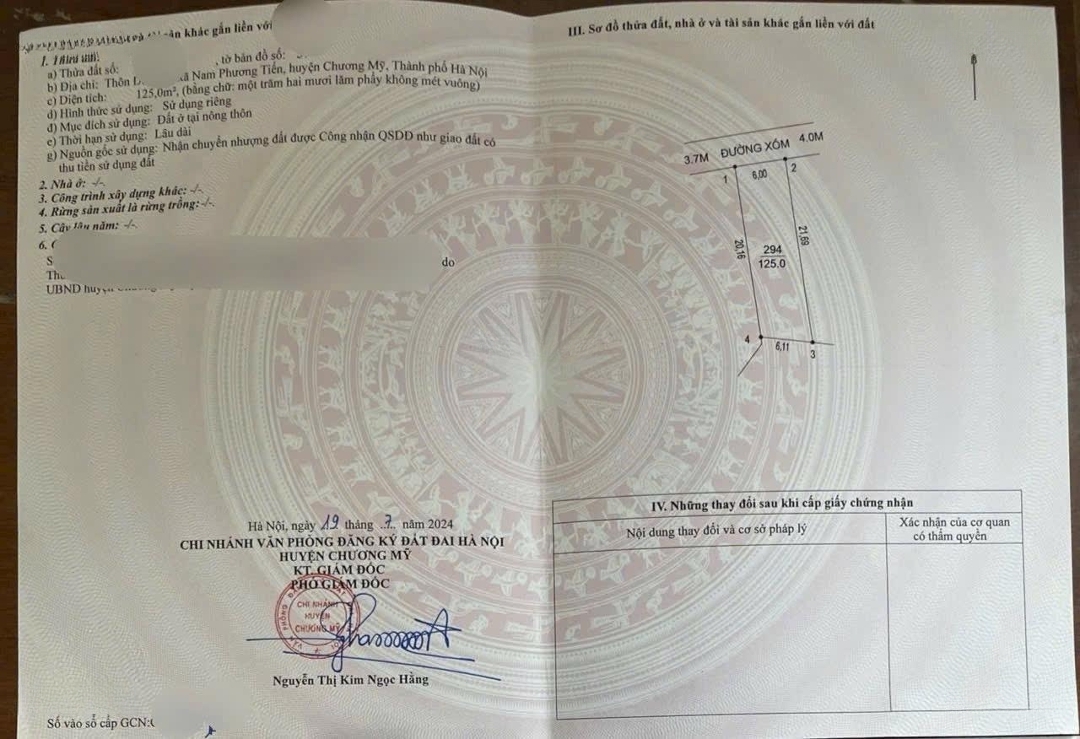 khác gắn liền với
1. Thửa đất:
a) Thửa đất số: , tờ bản đồ số:
b) Địa chỉ: Thôn xã Nam Phương Tiến, huyện Chương Mỹ, Thành phố Hà Nội
c) Diện tích: 125,0m², (bằng chữ: một trăm hai mươi lăm phẩy không mét vuông)
d) Hình thức sử dụng: Sử dụng riêng
đ) Mục đích sử dụng: Đất ở tại nông thôn
e) Thời hạn sử dụng: Lâu dài
g) Nguồn gốc sử dụng: Nhận chuyển nhượng đất được Công nhận QSDĐ như giao đất có
thu tiền sử dụng đất
2. Nhà ở: -/-
3. Công trình xây dựng khác: -/-.
4. Rừng sản xuất là rừng trồng: -/-.
5. Cây lâu năm: -/-
6.
do
UBND huyện
Hà Nội, ngày 19 tháng 7 năm 2024
CHI NHÁNH VĂN PHÒNG ĐĂNG KÝ ĐẤT ĐAI HÀ NỘI
HUYỆN CHƯƠNG MỸ
KT. GIÁM ĐỐC
PHÓ GIÁM ĐỐC
CHI NHÁNH
HUYỆN
CHƯƠNG MỸ
Nguyễn Thị Kim Ngọc Hằng
Số vào sổ cấp GCN:
III. Sơ đồ thửa đất, nhà ở và tài sản khác gắn liền với đất
B
3.7M ĐƯỜNG XÓM 4.0M
1 6,00 2
20,16 21,69
294
125.0
4 6,11 3
IV. Những thay đổi sau khi cấp giấy chứng nhận
Nội dung thay đổi và cơ sở pháp lý
Xác nhận của cơ quan
có thẩm quyền